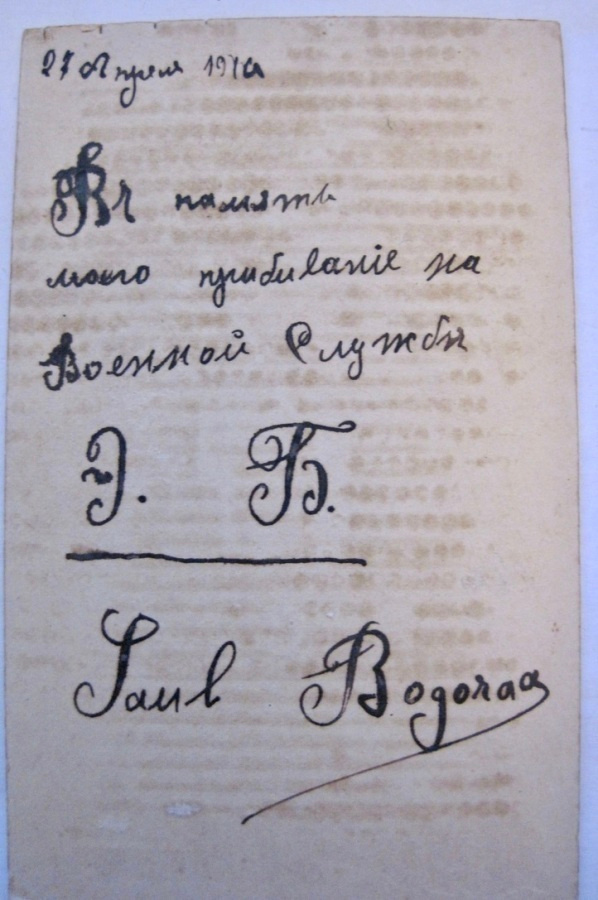 27 Апреля 191
Въ память
моего прибиванiе на
Военной Службы
Э. Б.
Saul